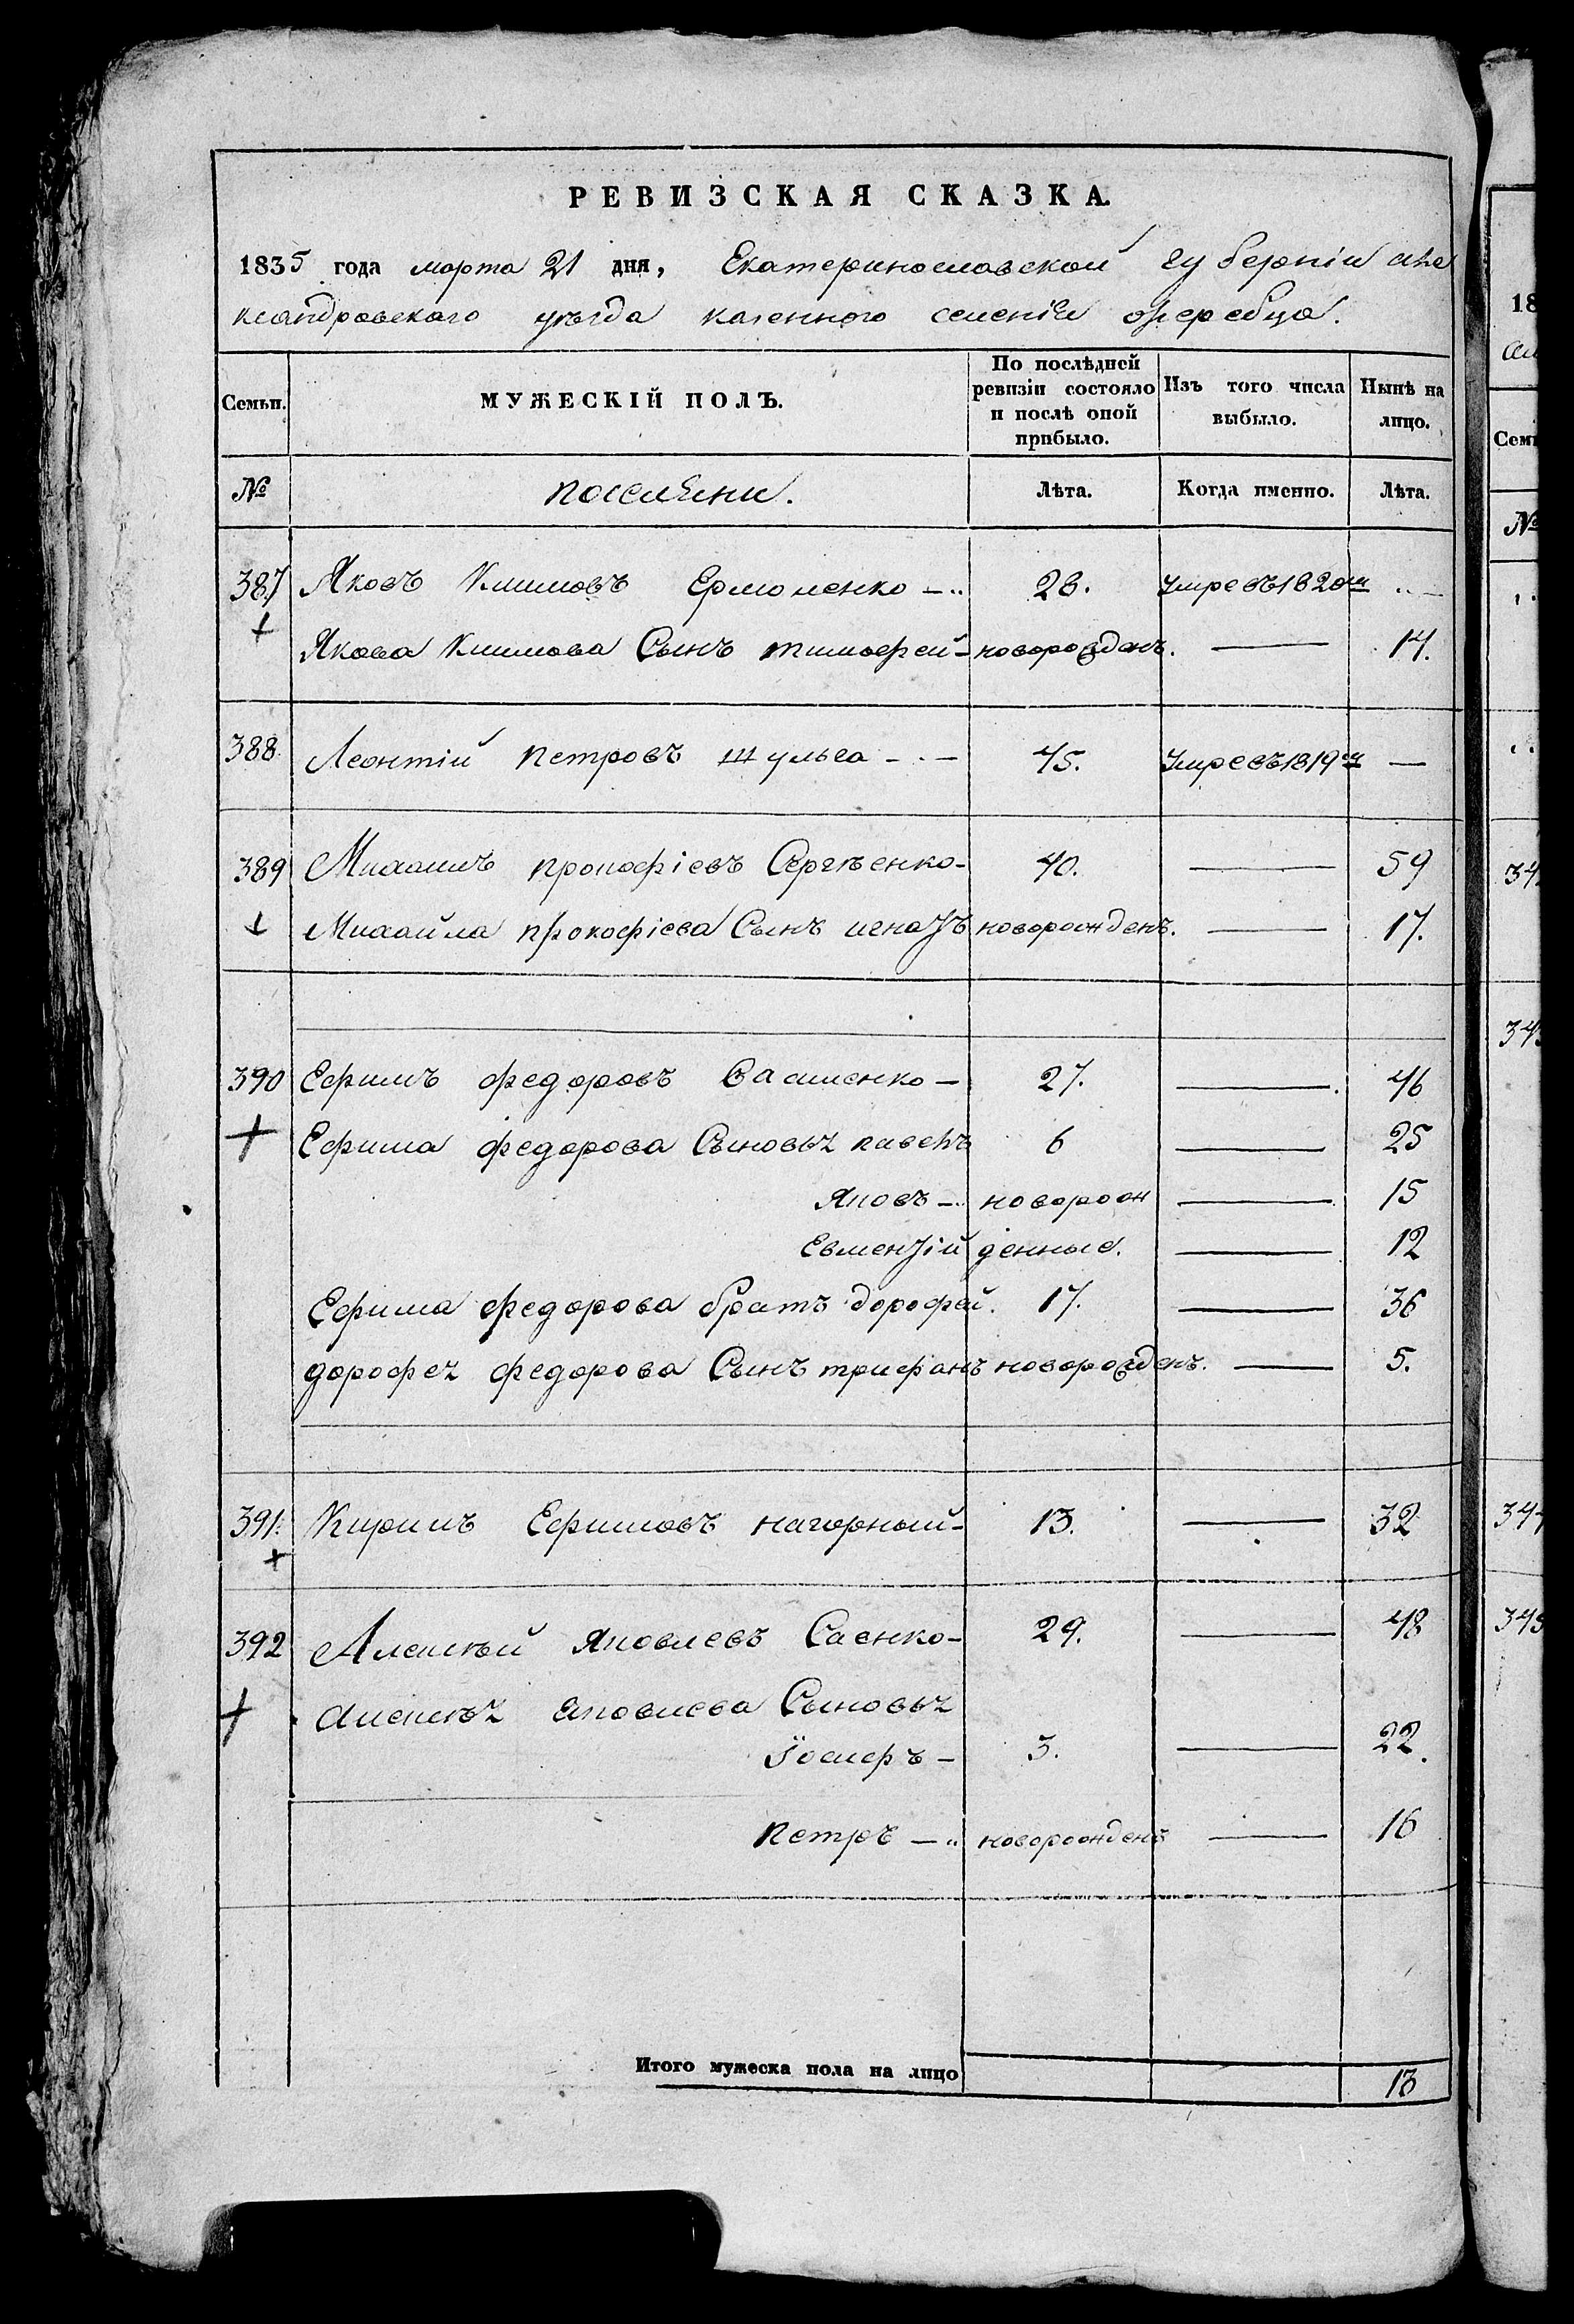 РЕВИЗСКАЯ СКАЗКА.
1835 года марта 21 дня, Екатеринославской губерніи але
ксандровскаго уѣзда казенного селенія жеребца.
Семьи. МУЖЕСКІЙ ПОЛЪ. По послѣдней ревизіи состояло и послѣ оной прибыло. Изъ того числа выбыло. Нынѣ на лицо.
№ поселяни. Лѣта. Когда именно. Лѣта.
387 Яковъ Климовъ Ермоленко 28. умре въ 1820м
Якова Климова Сынъ тимофей новорожденъ. 14.
388 Леонтій петровъ шульга 45. Умре въ 1819м
389 Михаилъ прокофіевъ Сергѣенко 40. 59
Михайла прокофіева Сынъ игнатъ новорожденъ. 17.
390 Ефимъ федоровъ Василенко 27. 46
Ефима федорова Сыновья павелъ 6 25
Яковъ новорож 15
Евментій денные. 12
Ефима федорова братъ дорофей. 17. 36
дорофея федорова Сынъ трифанъ новорожденъ. 5.
391. Кирилъ Ефимовъ нагорный 13. 32
392 Алексѣй Яковлевъ Саенко 29. 48
Алексѣя яковлева Сыновья
Їосифъ 3. 22.
петръ новорожденъ 16
Итого мужеска пола на лицо 13